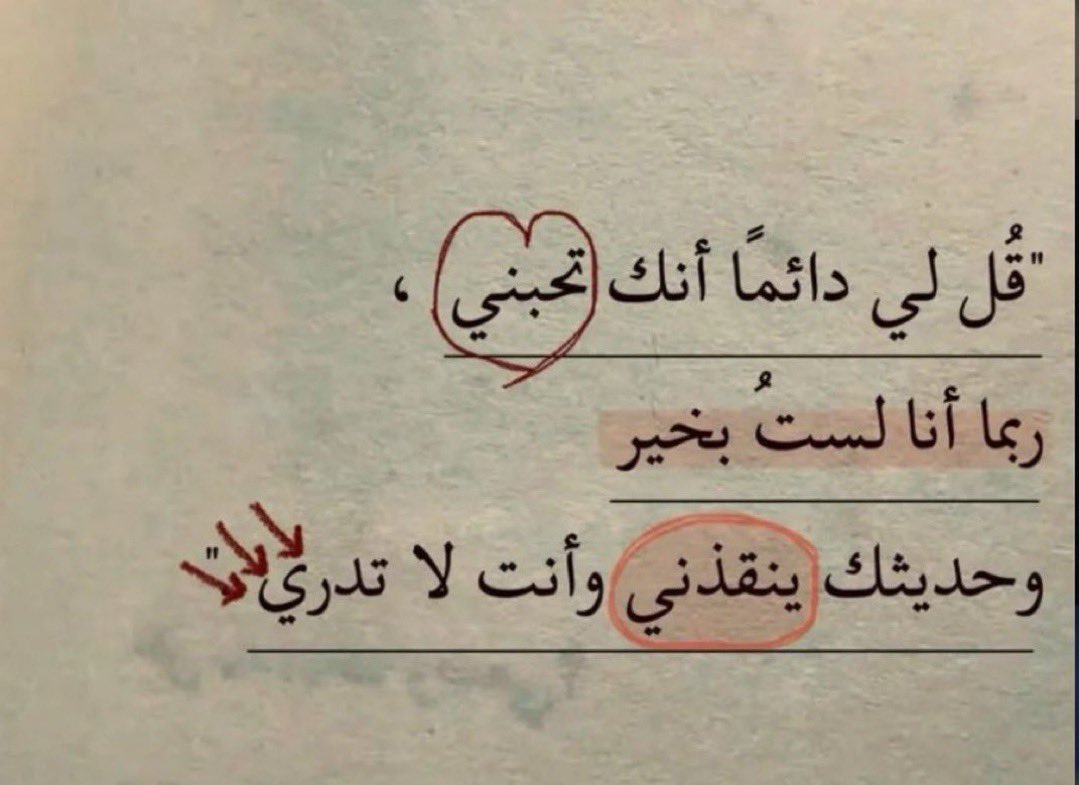 "قُل لي دائماً أنك تحبني ،
ربما أنا لستُ بخير
وحديثك ينقذني وأنت لا تدري"